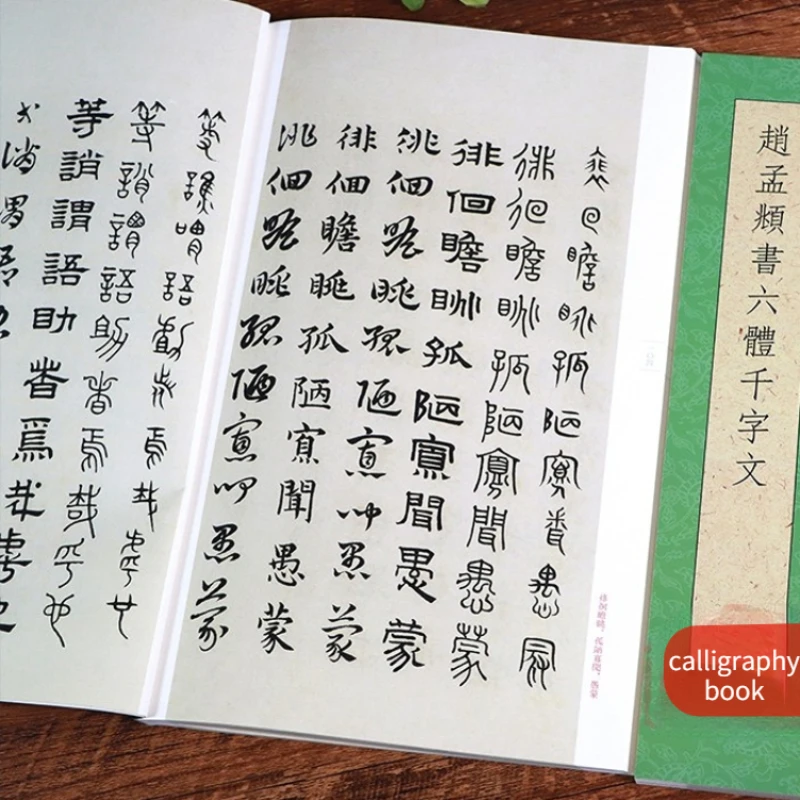 趙孟頫書六體千字文
calligraphy
book
徘徊瞻眺孤陋寡聞愚蒙
徘徊瞻眺孤陋寡聞愚蒙
徘徊瞻眺孤陋寡聞愚蒙
徘徊瞻眺孤陋寡聞愚蒙
徘徊瞻眺孤陋寡聞愚蒙
徘徊瞻眺孤陋寡聞愚蒙
等誚謂語助者焉哉乎也
等誚謂語助者焉哉乎也
等誚謂語助者焉哉乎